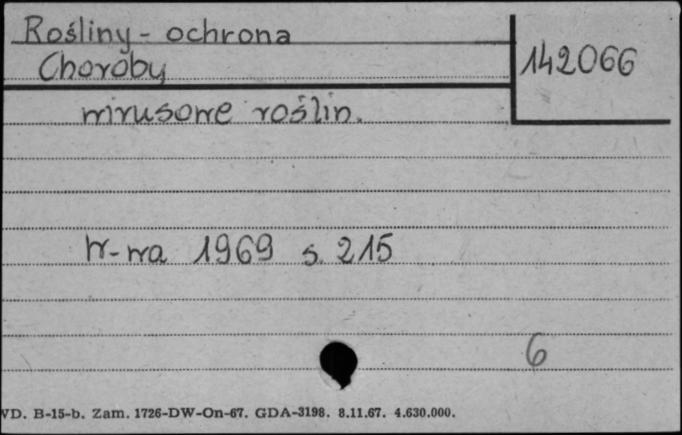 Rośliny - ochrona
Choroby
142066
wirusowe roślin.
W-wa 1969 s. 215
6
VD. B-15-b. Zam. 1726-DW-On-67. GDA-3198. 8.11.67. 4.630.000.